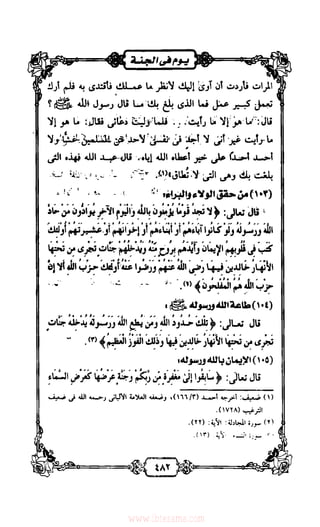 يوم فى الجنة
المرات فأردت أن آوى إليك لأنظر ما عملك فأقتدى به فلم أرك
تعمل كبير عمل فما الذى بلغ بك ما قال رسول الله ﷺ ؟
قال: ما هو إلا ما رأيت. فلما وليت دعانى فقال: ما هو إلا
ما رأيت غير أنى لا أجد فى نفسى لأحد من المسلمين غشًا ولا
أحسد أحدًا على خير أعطاه الله إياه. قال عبد الله فهذه التى
بلغت بك وهى التى لا نطاق»(١).
(١٠٣) من حقق الولاء والبراء:
قال تعالى: ﴿ لا تجد قومًا يؤمنون بالله واليوم الآخر يوادون من حاد
الله ورسوله ولو كانوا آباءهم أو أبناءهم أو إخوانهم أو عشيرتهم أولئك
كتب في قلوبهم الإيمان وأيدهم بروح منه ويدخلهم جنات تجري من تحتها
الأنهار خالدين فيها رضي الله عنهم ورضوا عنه أولئك حزب الله ألا إن
حزب الله هم المفلحون ﴾ (٢).
(١٠٤) طاعة الله ورسوله ﷺ:
قال تعالى: ﴿ تلك حدود الله ومن يطع الله ورسوله يدخله جنات
تجري من تحتها الأنهار خالدين فيها وذلك الفوز العظيم ﴾ (٣).
(١٠٥) الإيمان بالله ورسوله:
قال تعالى: ﴿ سابقوا إلى مغفرة من ربكم وجنة عرضها كعرض السماء
(١) ضعيف: أخرجه أحمد (١٦٦/٣)، وضعفه العلامة الألبانى رحمه الله فى ضعيف
الترغيب (١٧٢٨)
(٢) سورة المجادلة: الآية: (٢٢)
(٣) سورة النساء: الآية: (١٣)
٤٨٢